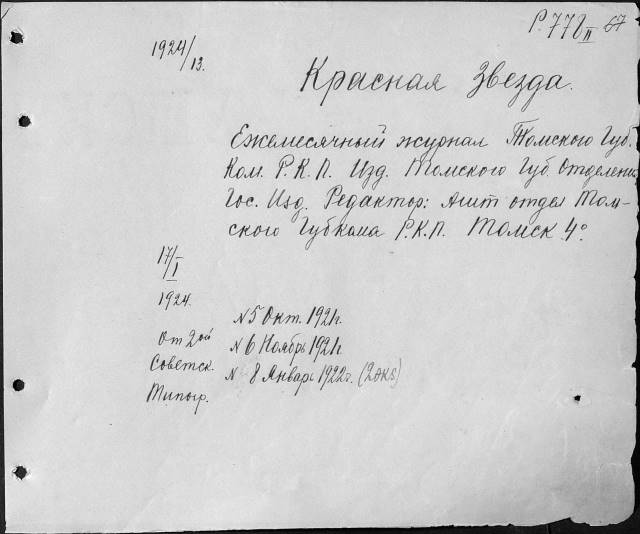 Р. 77
1924/13.
Красная Звезда.
Ежемесячный журнал Томского Губ.
Ком. Р. К. П. Изд. Томского Губ. Отделени
Гос. Изд. Редактор: Агит отдел Том-
ского Губкома Р.К.П. Томск 4°.
17/I
1924.
N 5 Окт. 1921г.
От 2ой
N 6 Ноябрь 1921г.
Советск.
N 8 Январь 1922г. (2экз)
Типогр.